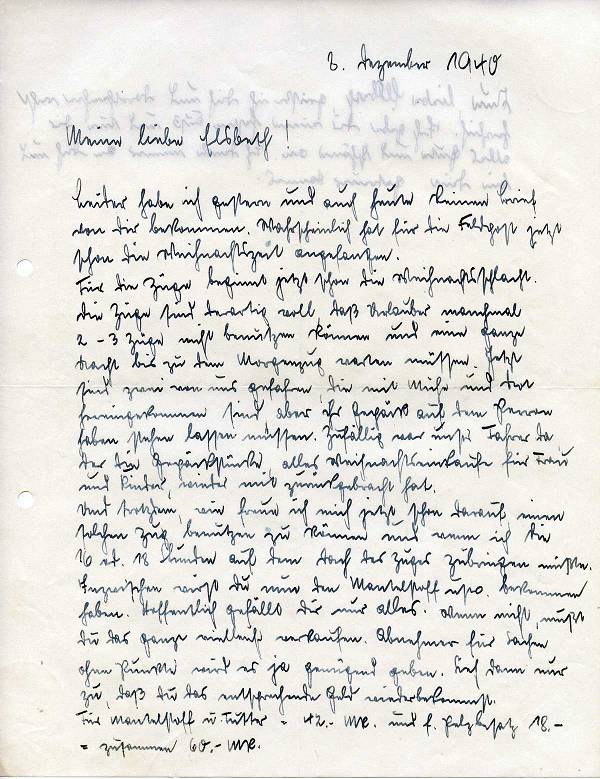 3. Dezember 1940
Meine liebe Elsbeth!
Leider habe ich gestern und auch heute keinen Brief
von dir bekommen. Wahrscheinlich hat für die Feldpost jetzt
schon die Weihnachtszeit angefangen.
Für die Züge beginnt jetzt schon die Weihnachtsschlacht.
Die Züge sind derartig voll, daß Urlauber manchmal
2 – 3 Züge nicht benutzen können und eine ganze
Nacht bis zu dem Morgenzug warten müssen. Jetzt
sind zwei von uns gefahren, die mit Mühe und Not
hereingekommen sind aber ihr Gepäck auf dem Perron
haben stehen lassen müssen. Zufällig war unser Fahrer da,
der die Gepäckstücke, alles Weihnachtseinkäufe für Frau
und Kinder, wieder mit zurückgebracht hat.
Und trotzdem, wie freue ich mich jetzt schon darauf, einen
solchen Zug benutzen zu können und wenn ich die
16 od. 18 Stunden auf dem Dach des Zuges zubringen müßte.
Inzwischen wirst du nun den Mantelstoff usw. bekommen
haben. Hoffentlich gefällt dir nur alles. Wenn nicht, mußt
du das ganze vielleicht verkaufen. Abnehmer für Sachen
ohne Punkte wird es ja genügend geben. Sieh dann nur
zu, daß du das entsprechende Geld wiederbekommst.
Für Mantelstoff u. Futter = 42.- Mk. und f. Pelzbesatz 18.-
= zusammen 60.- Mk.